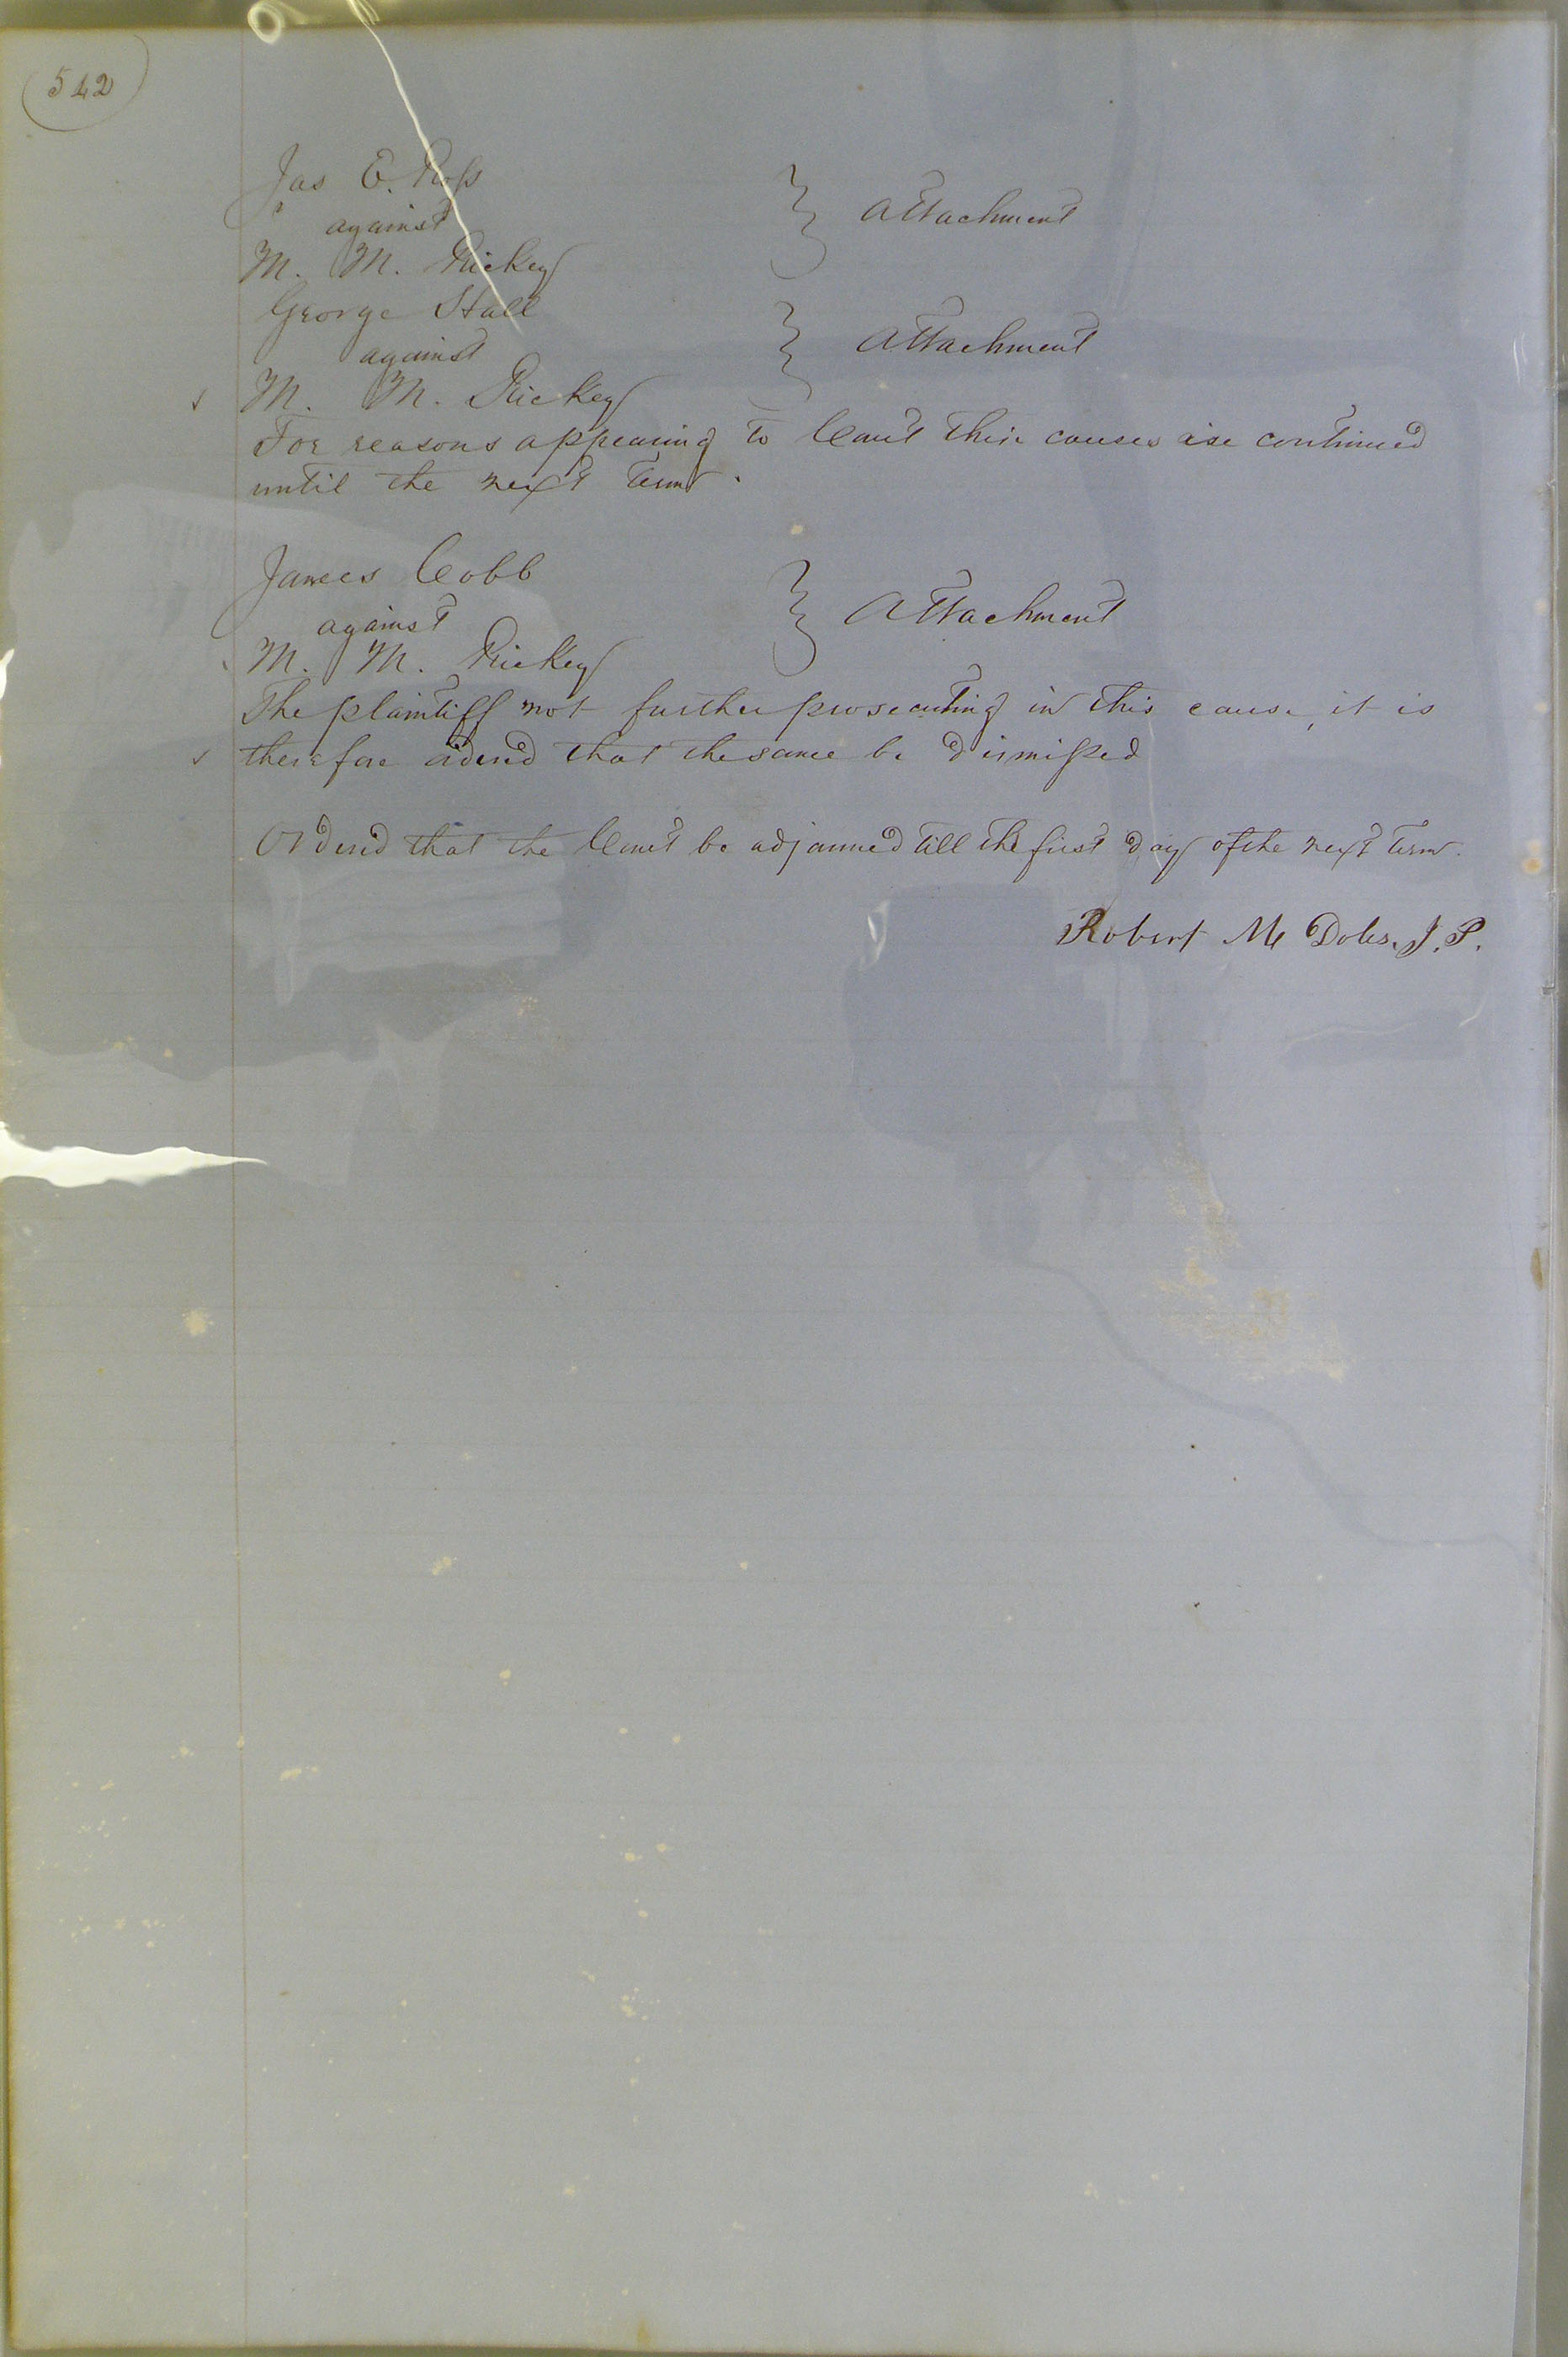 542
Jas E. Ross
against } Attachment
M. M. Rickey
George Hall
against } Attachment
M. M. Rickey
For reasons appearing to Court their causes are continued
until the next term.
James Cobb
against } Attachment
M. M. Rickey
The plaintiff not further prosecuting in this cause, it is
therefore ordered that the same be dismissed
Ordered that the Court be adjourned till the first day of the next term.
Robert M Doles. J. P.